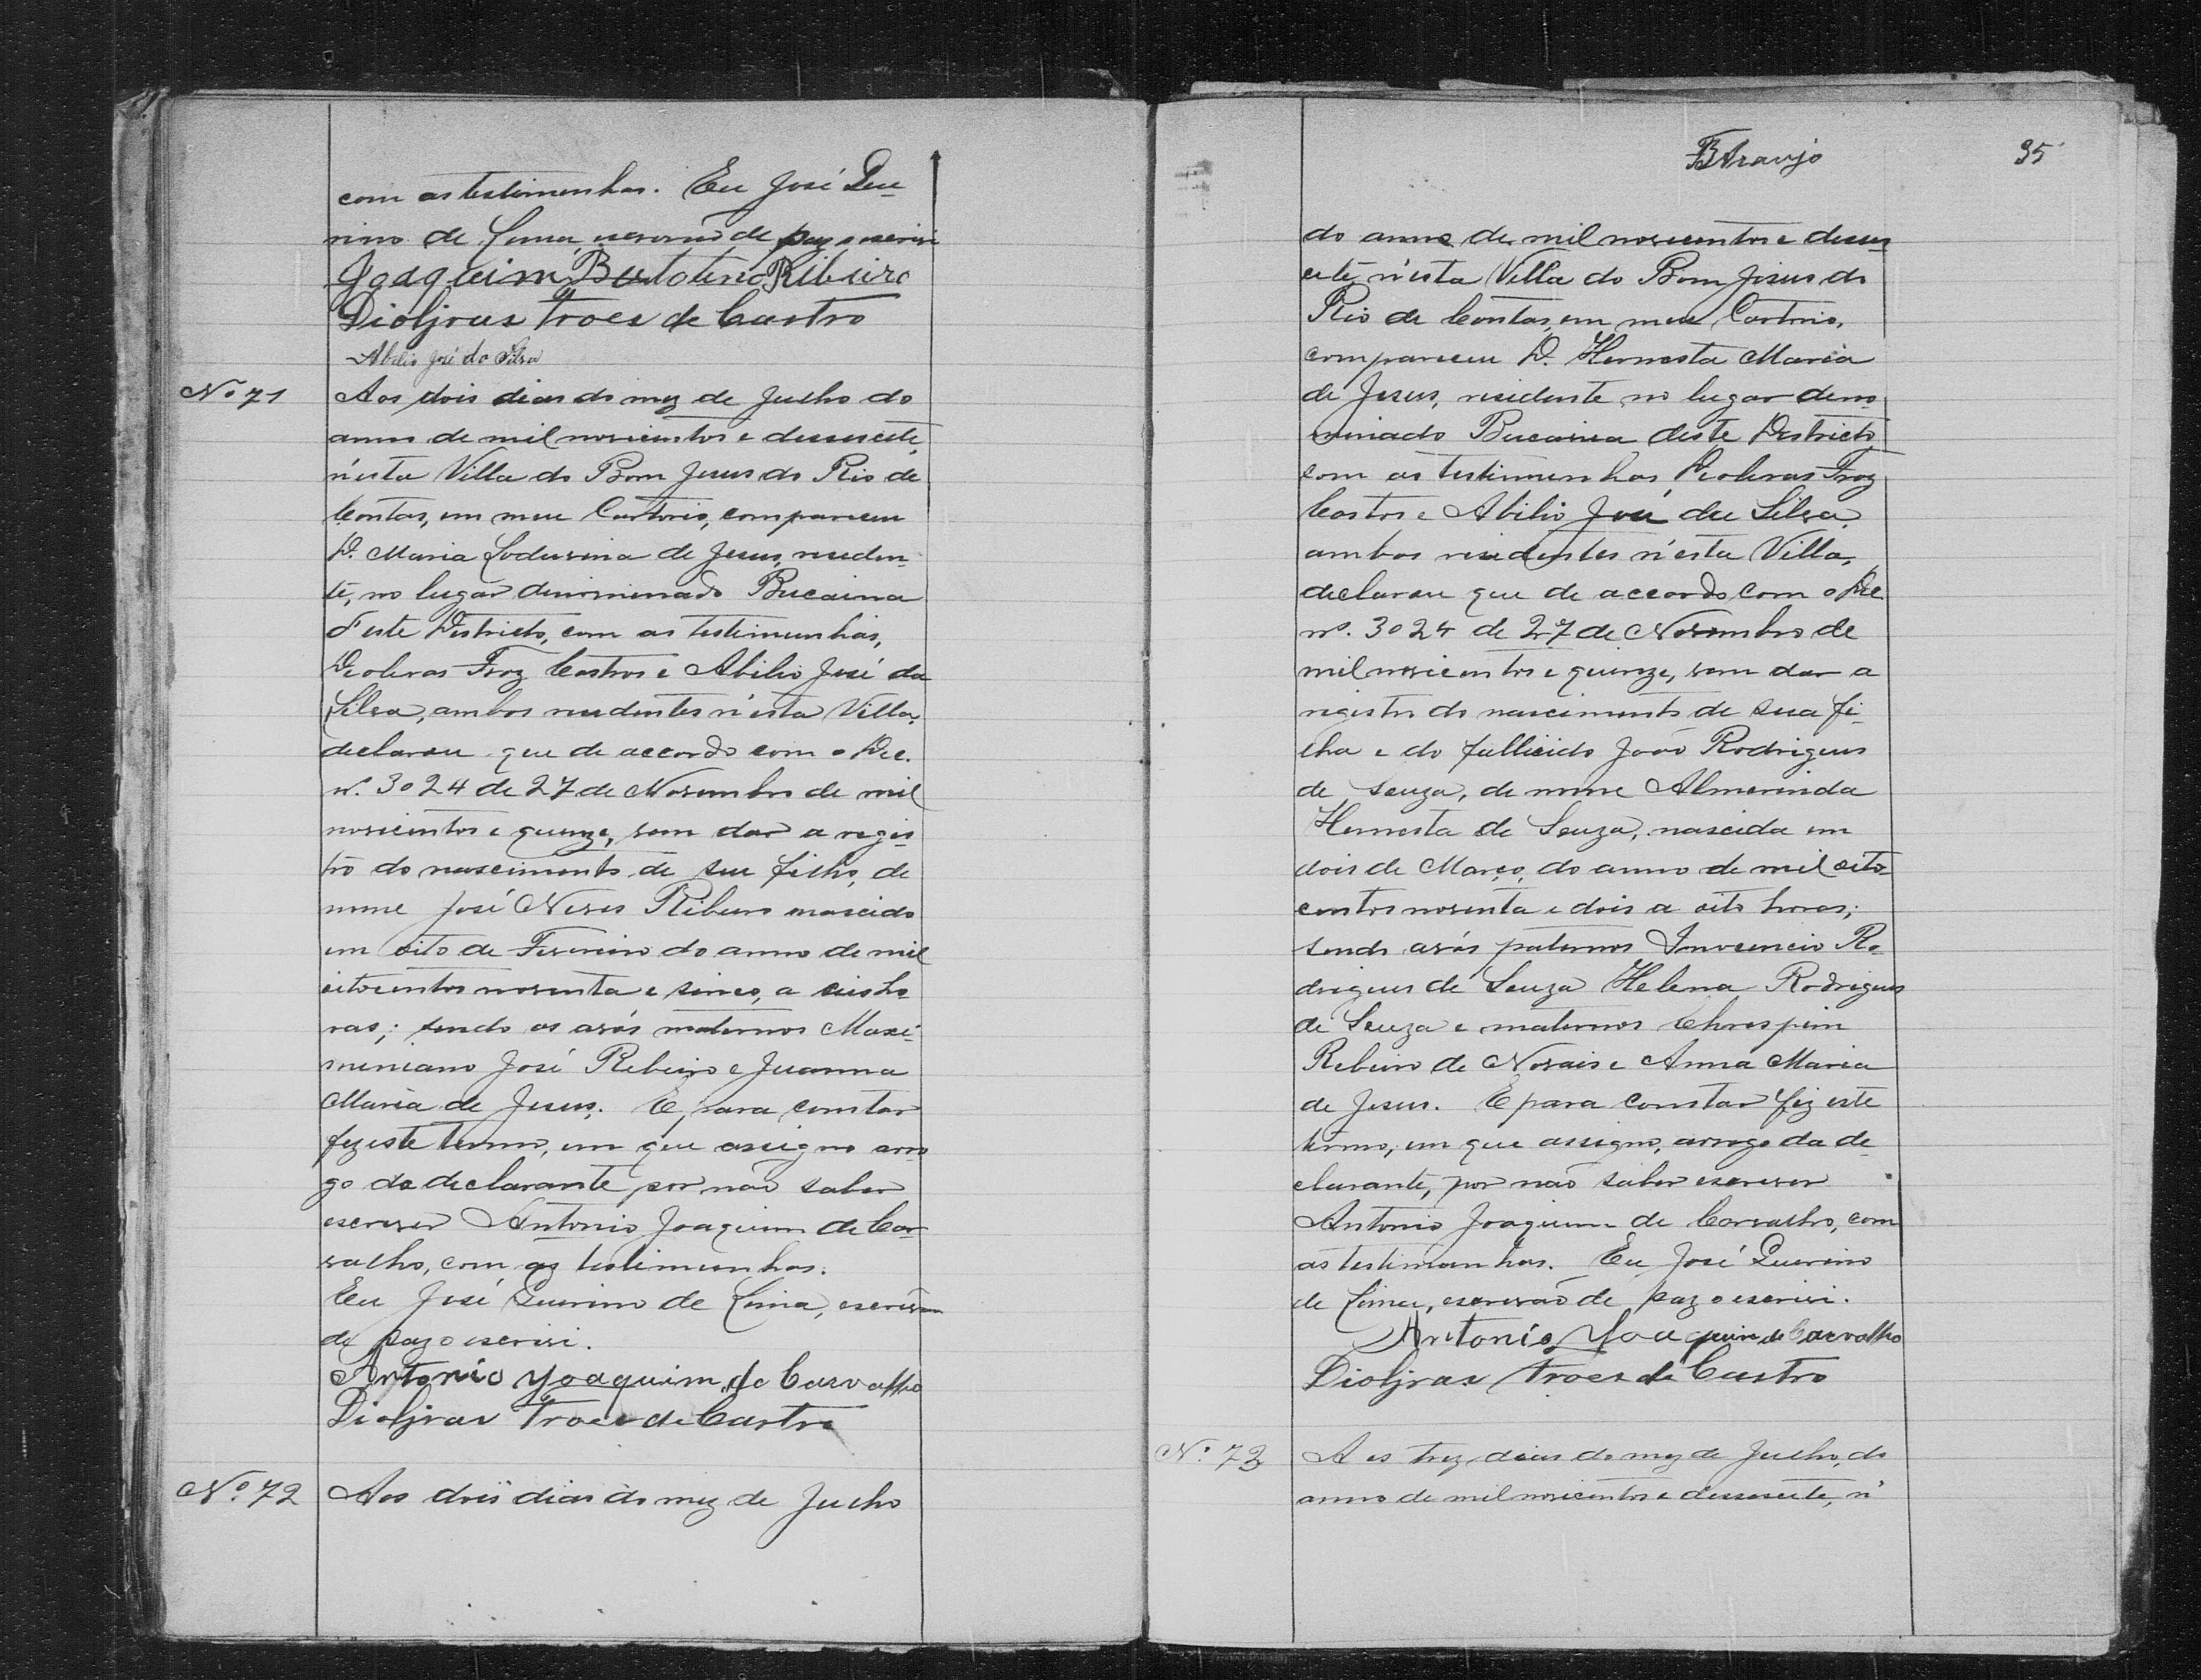 com as testimunhas. Eu José Que-
rino de Lima, escrivão de paz o escrivi
Joaquim Bertolino Ribeiro
Dioljras Froes de Castro
Abilio José da Silva
Nº 71
Aos dois dias do mez de Julho do
anno de mil novicentos e desesete,
n'esta Villa do Bom Jesus do Rio de
Contas, em meu Cartorio, compareceu
D. Maria Loduvina de Jesus, residen-
te, no lugar dinominado Bucaina
d'este Districto, com as testimunhas,
Deoleras Froz Castros e Abilio José da
Silva, ambos residentes n'esta Villa,
declarou que de accordo com o Dec.
nº. 3024 de 27 de Novembro de mil
novicentos e quinze, vem dar a regis-
tro do nascimento de seu filho, de
nome José Neves Ribeiro nascido
em oito de Fevreiro do anno de mil
oitocentos noventa e sinco, a seis ho-
ras; sendo os avós maternos Maxi-
miniano José Ribeiro e Juanna
Maria de Jesus. E, para constar
fiz este termo, em que assigno arro-
go da declarante por não saber
escrever Antonio Joaquim de Car-
valho, com as testimunhas.
Eu José Querino de Lima, escrivão
de paz o escrivi.
Antonio Joaquim de Carvalho
Dioljras Froes de Castro
Nº. 72
Aos dois dias do mez de Julho
BAraujo
35
do anno de mil novecentos e deses-
ete, n'esta Villa do Bom Jesus do
Rio de Contas, em meu Cartorio,
compareceu D. Hernesta Maria
de Jesus, residente no lugar deno-
minado Bucaina deste Districto
com as testimunhas Deoleras Froz
Castros e Abilio José da Silva,
ambos residentes n'esta Villa,
declarou que de accordo com o Dec.
nº. 3024 de 27 de Novembro de
mil novicentos e quinze, vem dar a
registro do nascimento de sua fi-
lha e do fallicido João Rodrigues
de Souza, de nome Almerinda
Hernesta de Souza, nascida em
dois de Março, do anno de mil oito-
centos noventa e dois a oito horas;
sendo avós paternos Innocencio Ro-
drigues de Souza Helena Rodrigues
de Souza e maternos Chrespim
Ribeiro de Novais e Anna Maria
de Jesus. E para constar fiz este
termo, em que assigno, arrogo da de-
clarante, por não saber escrever
Antonio Joaquim de Carvalho, com
as testimunhas. Eu José Querino
de Lima, escrivão de paz o escrivi.
Antonio Joaquim de Carvalho
Dioljras Froes de Castro
Nº. 73
Aos trez dias do mez de Julho, do
anno de mil novicentos e desesete, n'